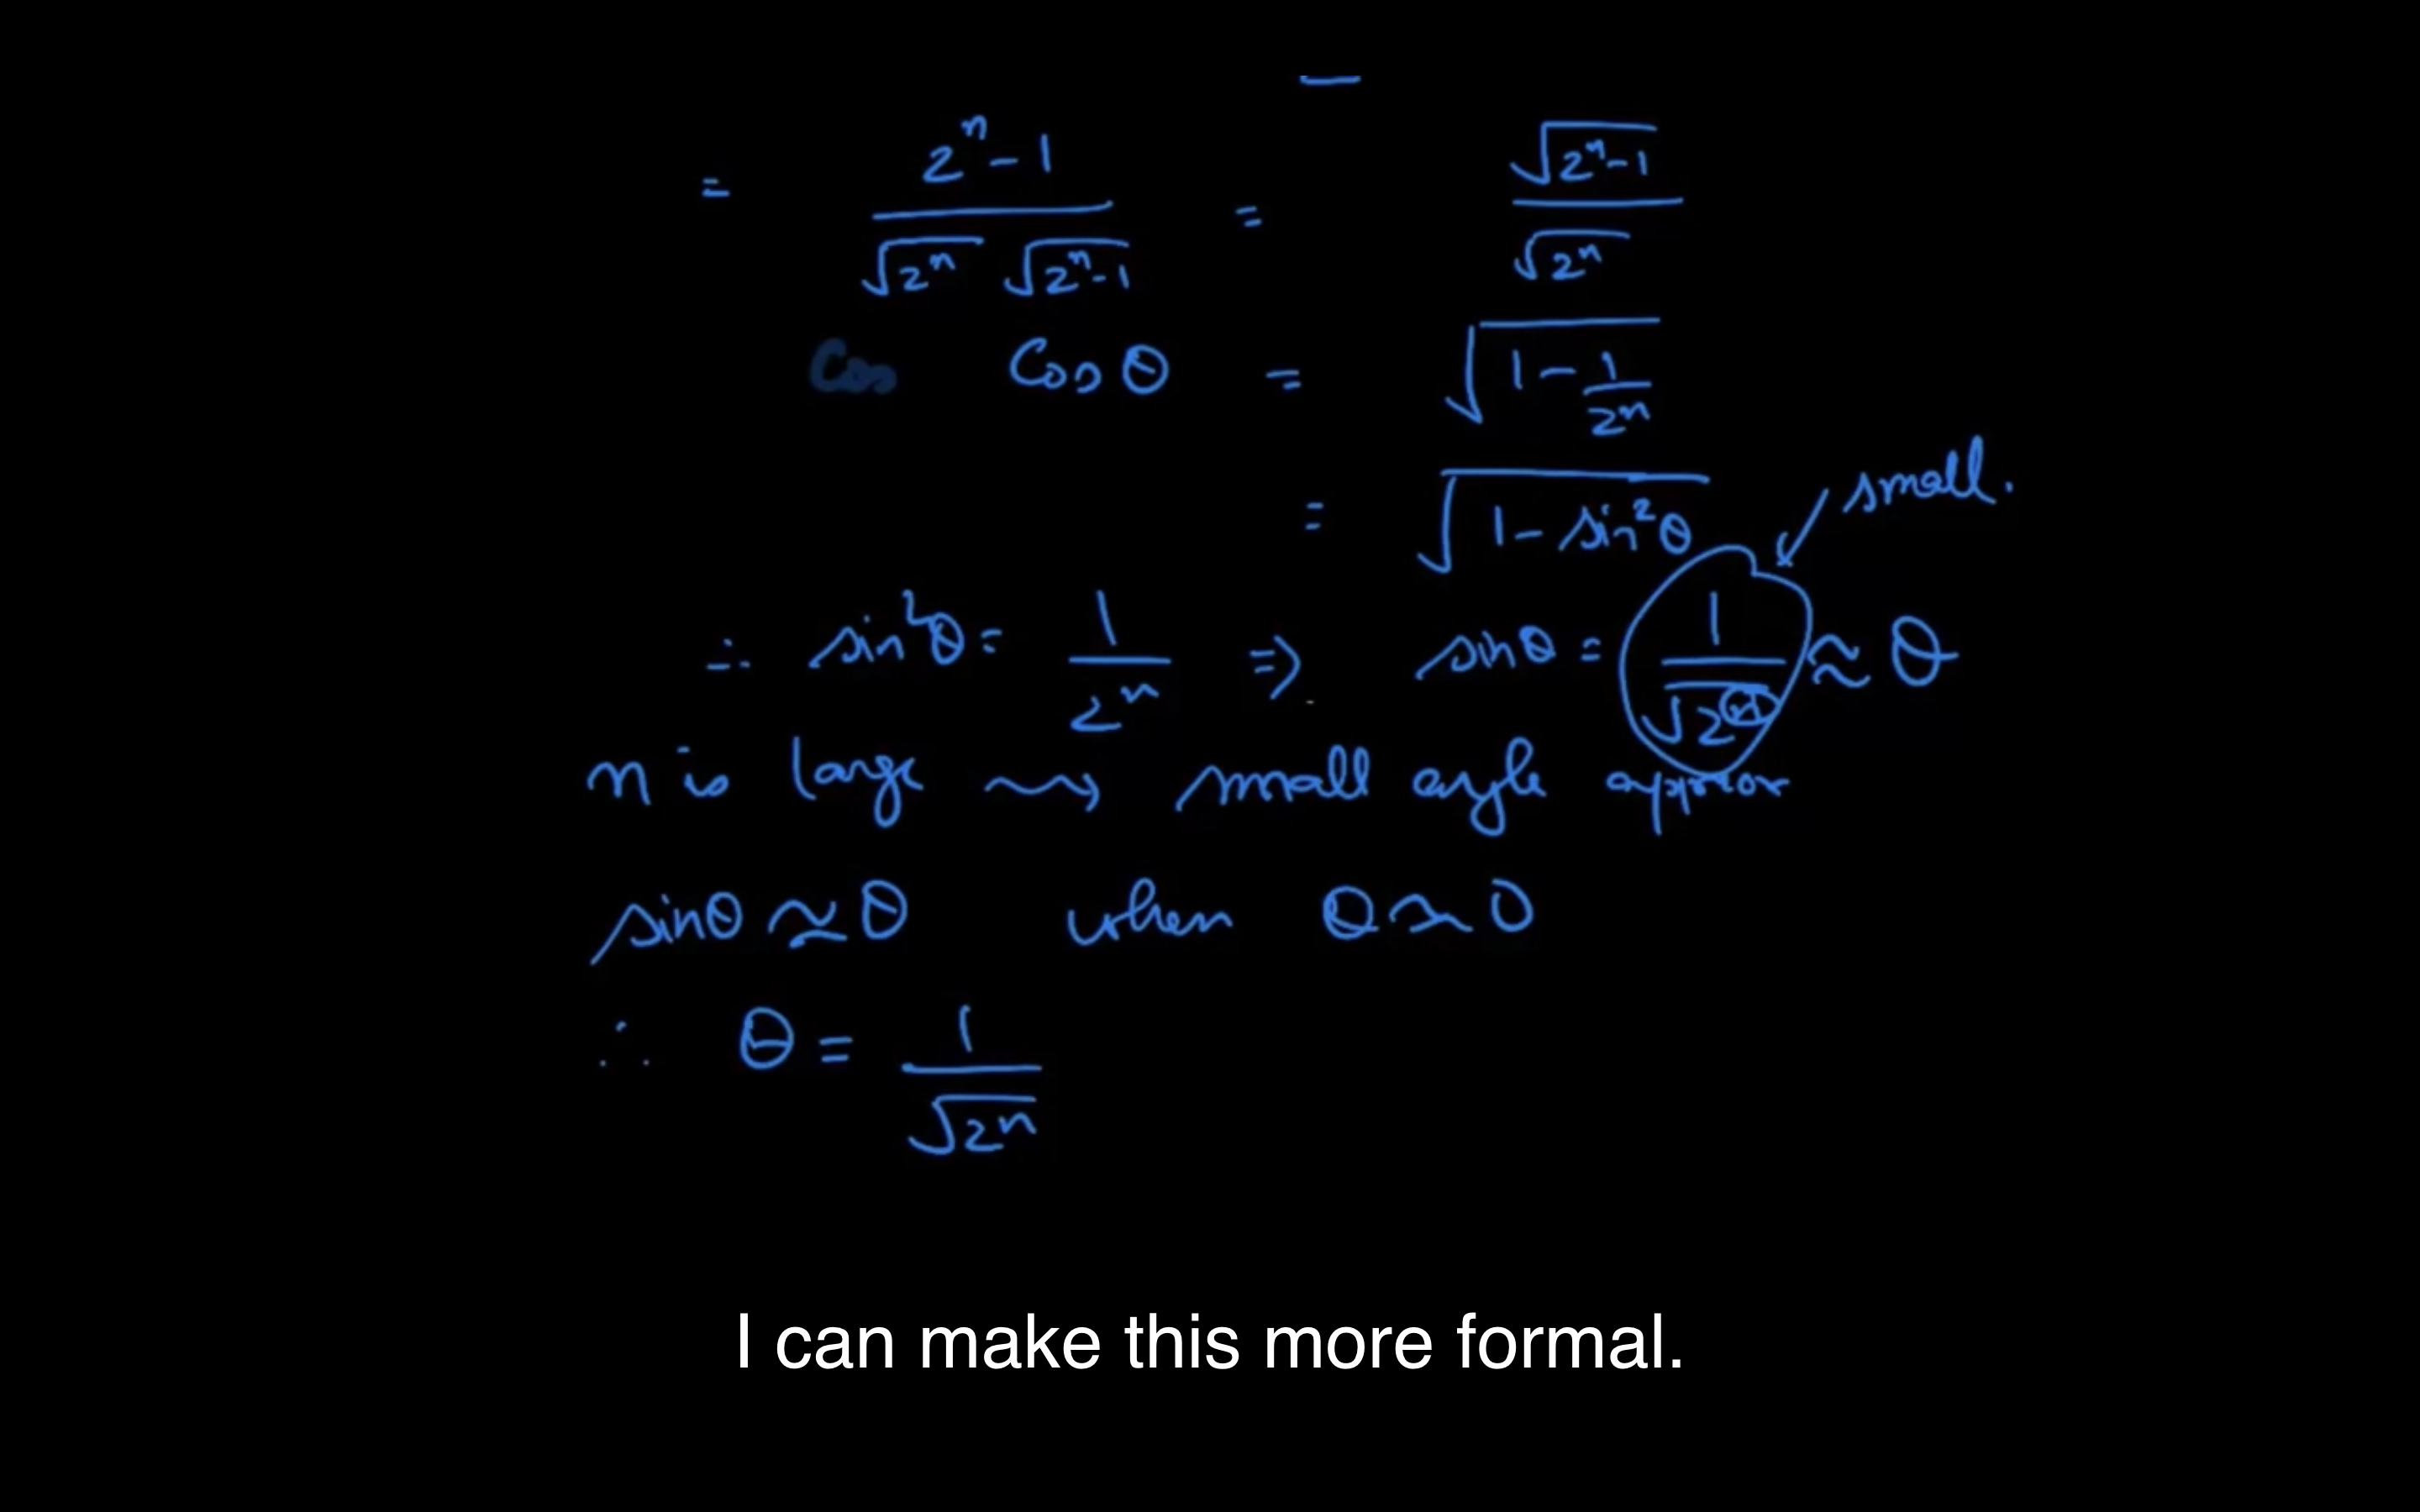 = (2^n - 1) / (√(2^n) √(2^n - 1)) = √(2^n - 1) / √(2^n)
Cos Cos θ = √(1 - 1/2^n)
= √(1 - sin²θ) small.
∴ sin²θ = 1/2^n ⇒ sinθ = 1/√(2^n) ≈ θ
n is large ⇝ small angle approx
sinθ ≃ θ when θ ≈ 0
∴ θ = 1/√(2^n)
I can make this more formal.